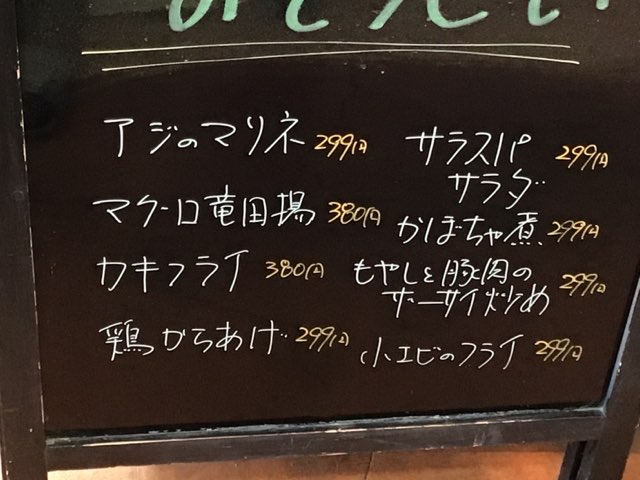 アジのマリネ 299円
マグロ竜田揚 380円
カキフライ 380円
鶏からあげ 299円
サラスパ 299円
サラダ
かぼちゃ煮 299円
もやしと豚肉の 299円
ザーサイ炒め
小エビのフライ 299円